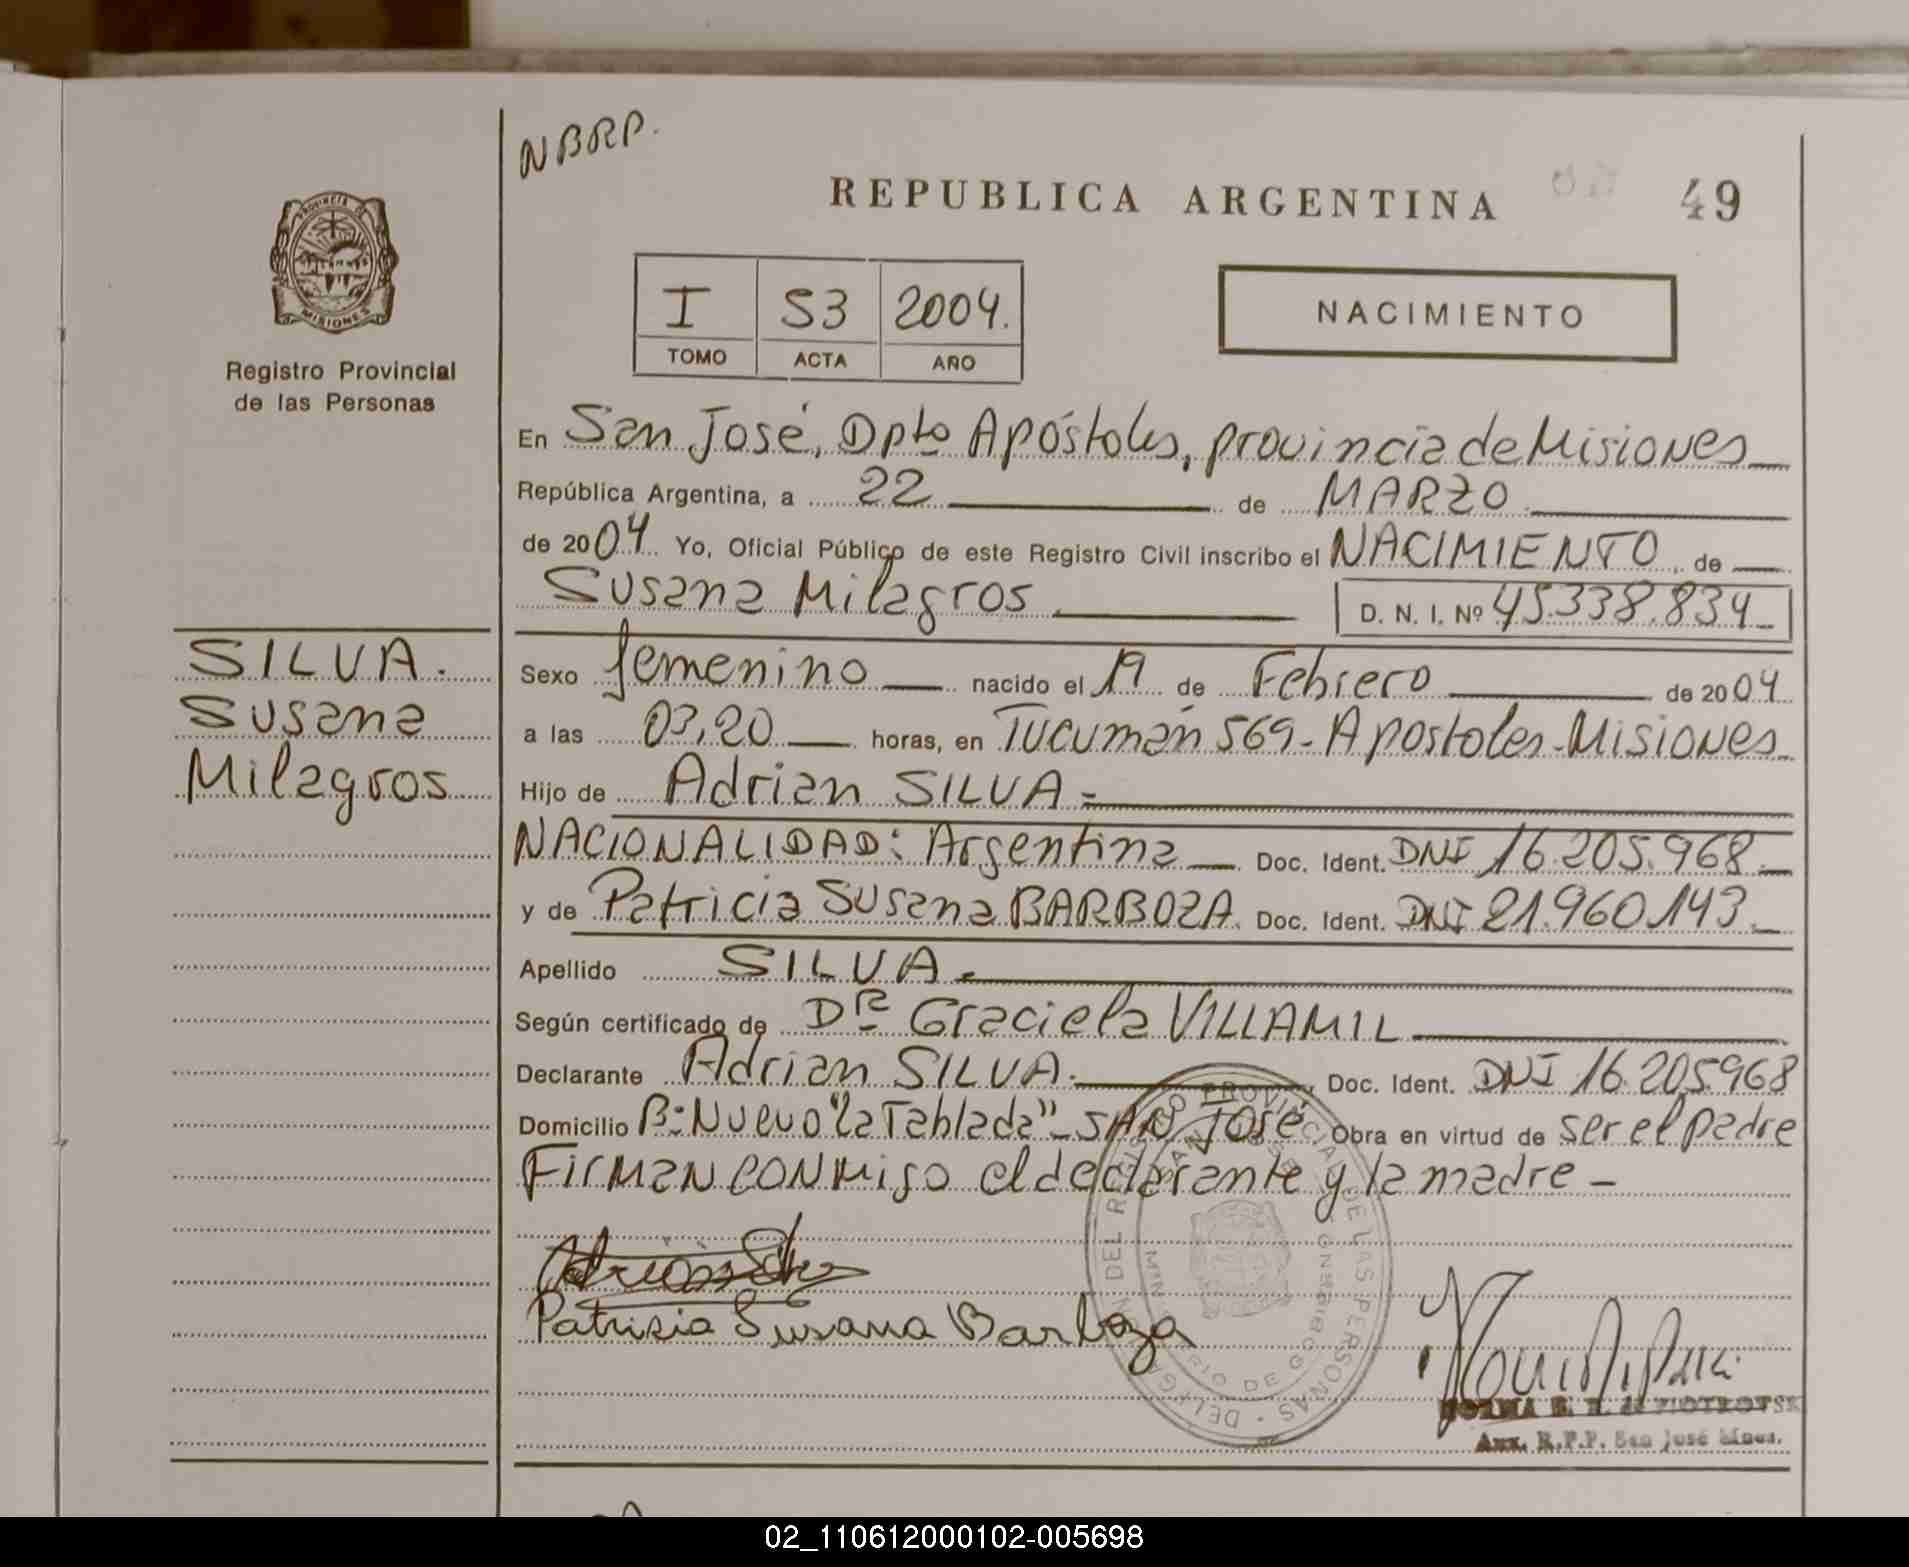 NBRP.
REPUBLICA ARGENTINA
49
PROVINCIA DE
MISIONES
Registro Provincial
de las Personas
I 53 2004.
TOMO ACTA AÑO
NACIMIENTO
En San José, Dpto Apóstoles, provincia de Misiones
República Argentina, a 22 de MARZO
de 2004 Yo, Oficial Público de este Registro Civil inscribo el NACIMIENTO de
Susana Milagros D. N. I. Nº 45.338.834
SILVA.
Susana
Milagros
Sexo femenino nacido el 19 de Febrero de 2004
a las 03,20 horas, en Tucumán 569 - Apostoles - Misiones
Hijo de Adrian SILVA =
NACIONALIDAD: Argentina Doc. Ident. DNI 16.205.968
y de Patricia Susana BARBOZA Doc. Ident. DNI 21.960.143
Apellido SILVA.
Según certificado de Dra Graciela VILLAMIL
Declarante Adrian SILVA. Doc. Ident. DNI 16.205968
Domicilio Bº Nuevo "La Tablada" - SAN José Obra en virtud de ser el padre
Firman conmigo el declarante y la madre -
Patrisia Susana Barboza
DEL REGISTRO PROVINCIAL DE LAS PERSONAS
SAN JOSE
MINISTERIO DE GOBIERNO
NORMA de PIOTROFSK
Aux. R.P.P. San José Mnes.
02_110612000102-005698